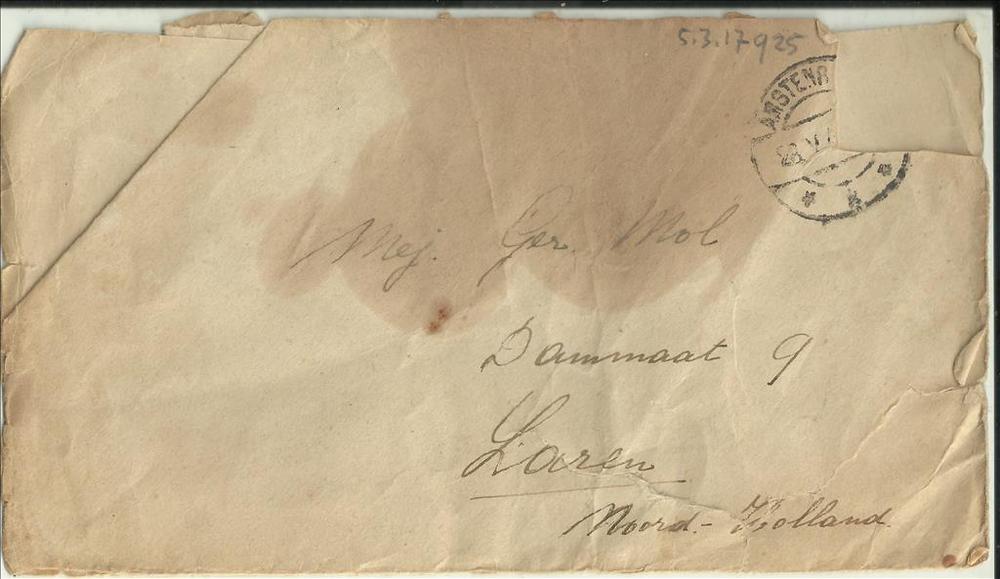 5.3.17925
AMSTENR
28 V
Mej. Ger. Mol
Dammaat 9
Laren
Noord-Holland.